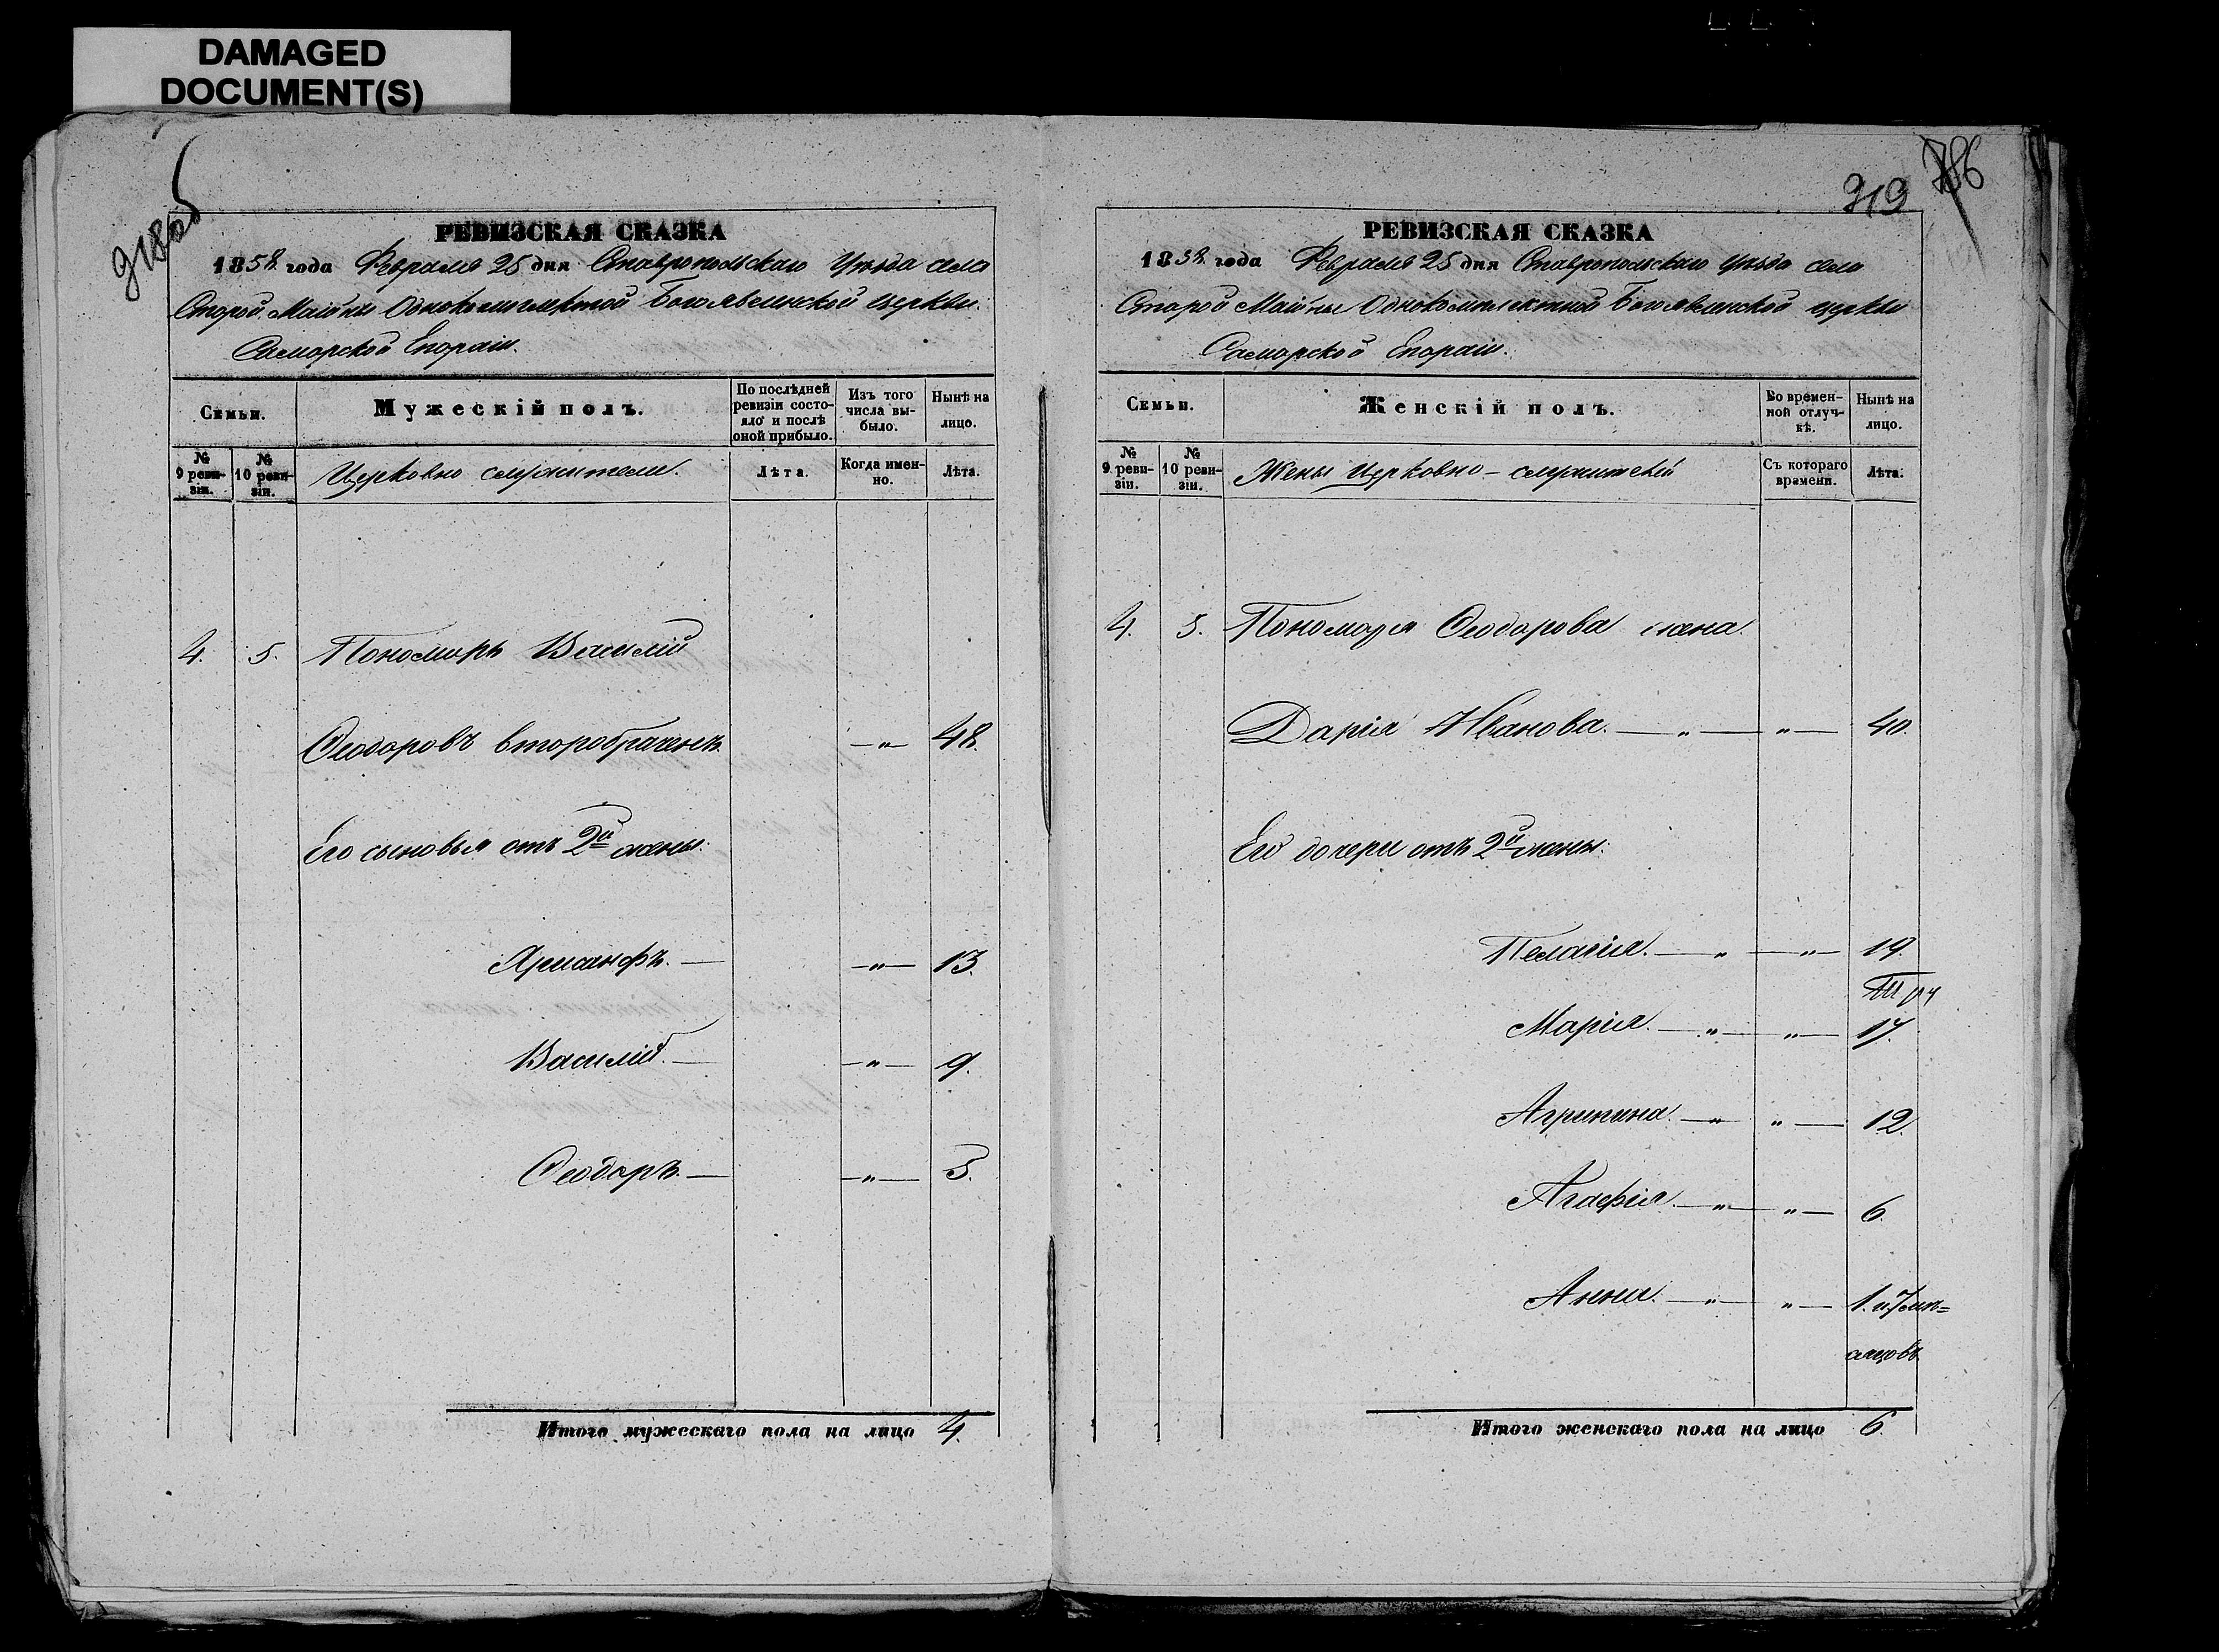 DAMAGED
DOCUMENT(S)
918об
РЕВИЗСКАЯ СКАЗКА
1858 года Февраля 25 дня Ставропольскаго Уѣзда села
Старой Майны Однокомплектной Богоявленской церкви
Самарской Епархіи.
Семьи.
Мужескій полъ.
По послѣдней ревизіи состояло и послѣ оной прибыло.
Изъ того числа выбыло.
Нынѣ на лицо.
№ 9 ревизіи.
№ 10 ревизіи.
Церковно служители.
Лѣта.
Когда именно.
Лѣта.
4. 5. Пономарь Василій
Ѳеодоровъ второбраченъ — " — 48.
Его сыновья отъ 2й жены:
— " — 13.
Василій. — — " — 9.
Ѳеодоръ. — — " — 5.
Итого мужескаго пола на лицо 4.
919 786
РЕВИЗСКАЯ СКАЗКА
1858 года Февраля 25 дня Ставропольскаго Уѣзда села
Старой Майны Однокомплектной Богоявленской церкви
Самарской Епархіи.
Семьи.
Женскій полъ.
Во временной отлучкѣ.
Нынѣ на лицо.
№ 9 ревизіи.
№ 10 ревизіи.
Жены Церковно-служителей
Съ котораго времени.
Лѣта.
4. 5. Пономаря Ѳеодорова жена.
Дарія Иванова. — " — " — 40.
Его дочери отъ 2й жены:
Пелагія. — " — " — 19.
Марія. — " — " — 17.
Агрипина. — " — " — 12.
Агафія. — " — " — 6.
Анна. — " — " — 1. и 7 мѣ=
сяцовъ
Итого женскаго пола на лицо 6.